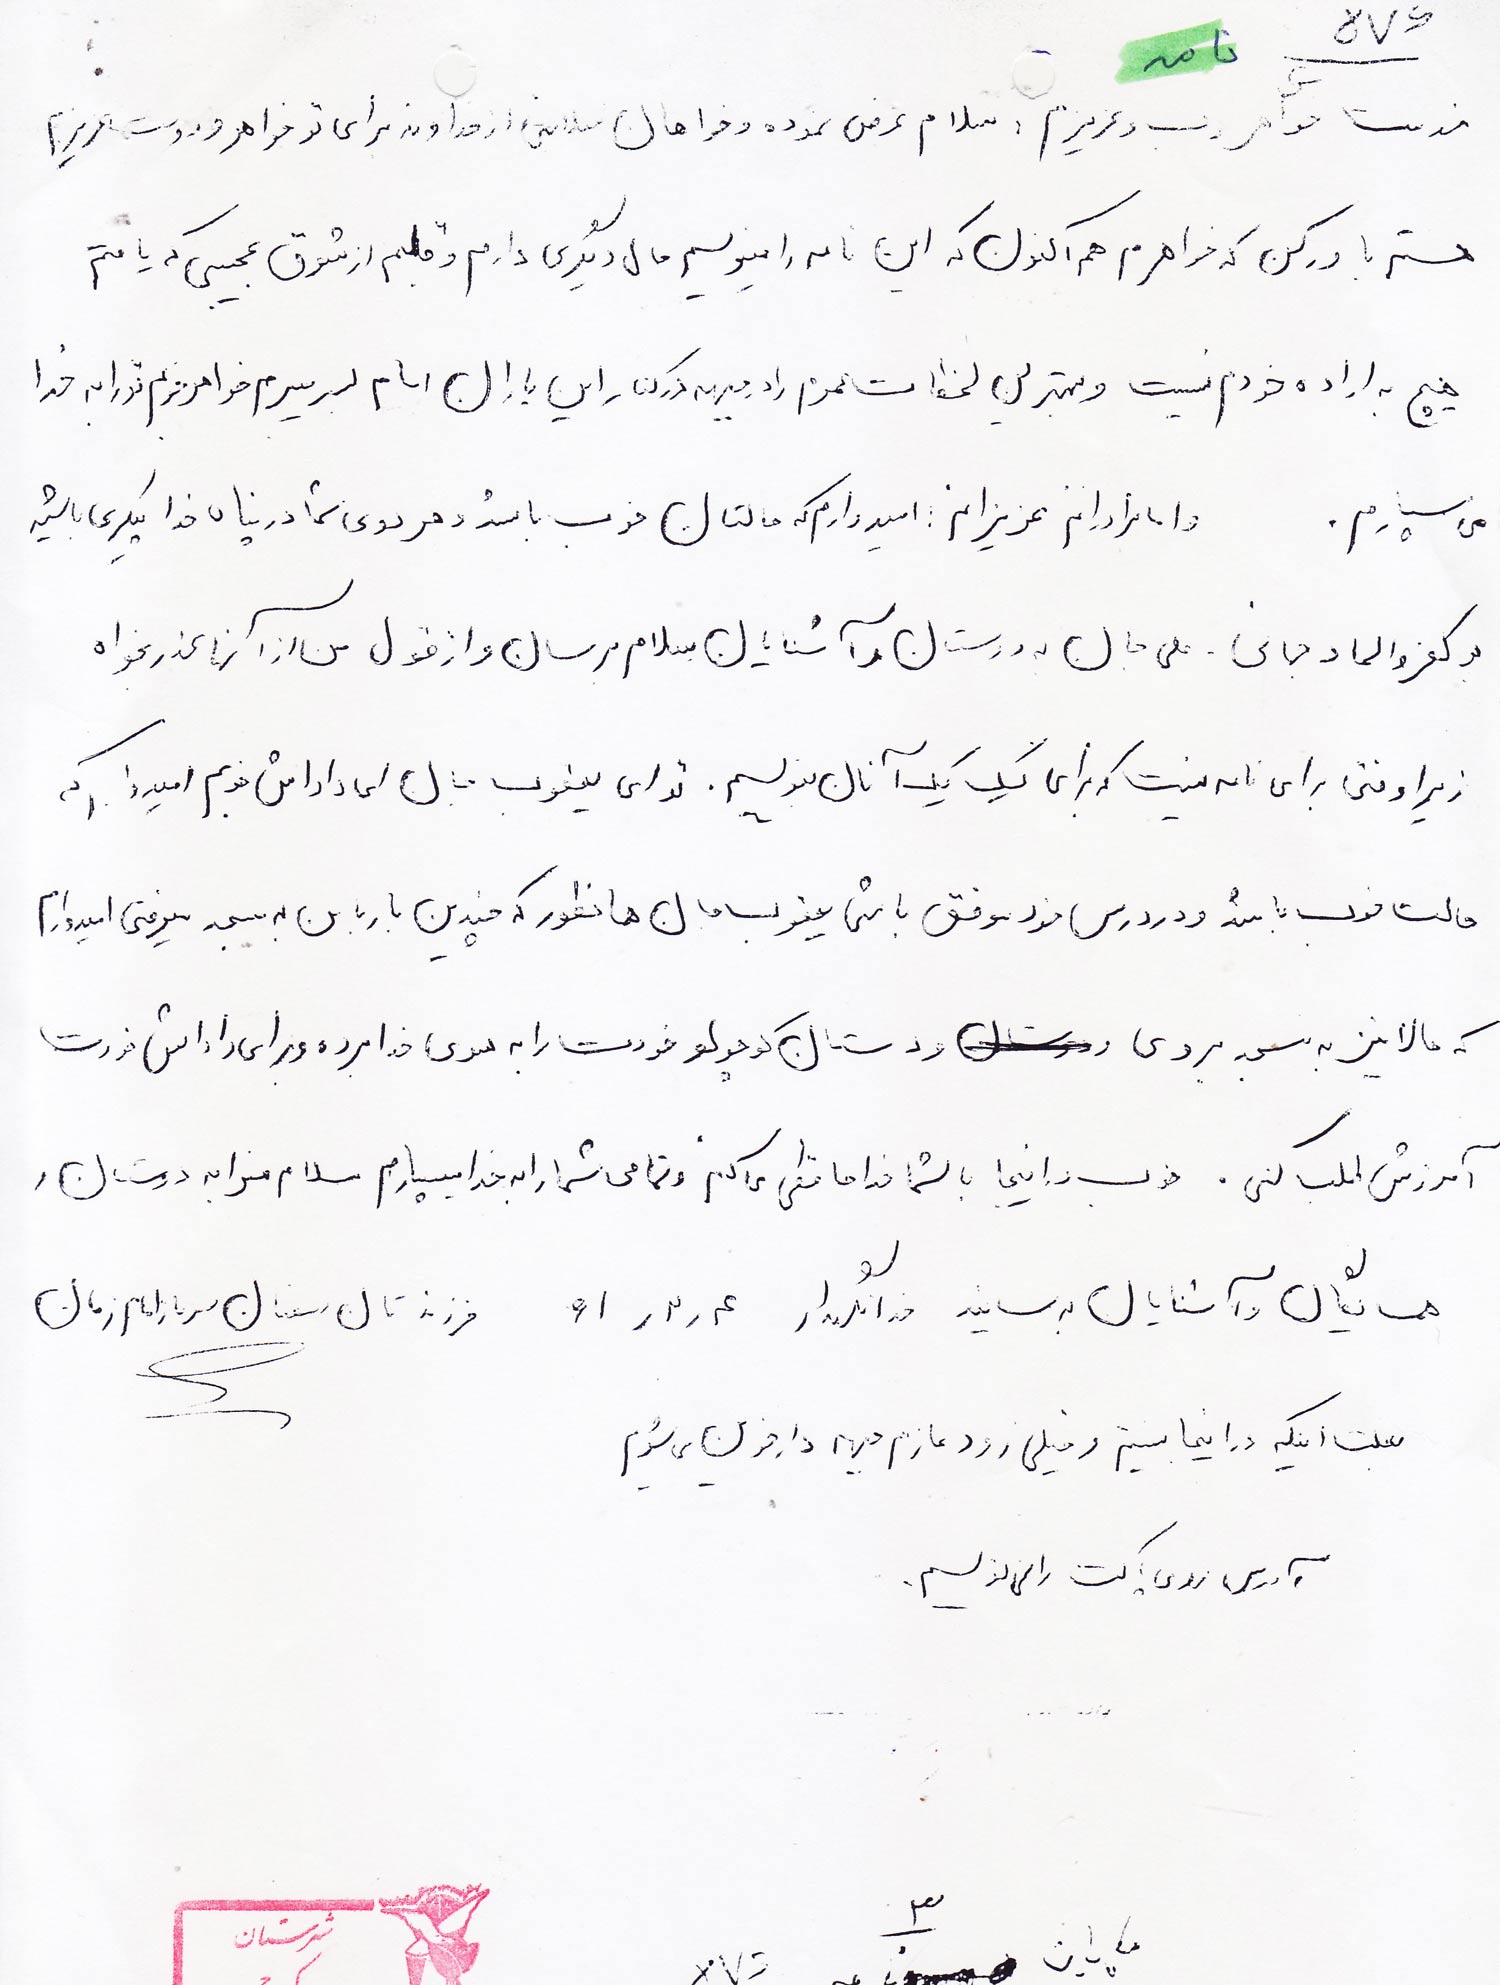 ۵۷۶
نامه
خدمت خواهر خوب و عزیزم : سلام عرض نموده و خواهان سلامتی از خداوند برای تو خواهر و دوست عزیزم
هستم باور کن که خواهرم هم اکنون که این نامه را مینویسم حال دیگری دارم و قلبم از شوق عجیبی که یافتم
هیچ به اراده خودم نیست و بهترین لحظات عمرم را در جبهه در کنار این یاران امام بسر میبرم خواهر خوبم تو را به خدا
می سپارم . و اما برادران عزیزانم : امیدوارم که حالتان خوب باشد و هر دوی شما در پناه خدا باشید
علی جان به دوستان و آشنایان سلام برسان و از قول من از آنها عذر بخواه
زیرا وقتی برای نامه نیست که برای یک یک آنان بنویسم . تو ای یعقوب جان ای داداش خوبم امیدوارم که
حالت خوب باشد و در درس خود موفق باشی یعقوب جان همانطور که چندین بار با من به مسجد میرفتی امیدوارم
که حالا نیز به مسجد بروی و دستان کوچولو خودت را به سوی خدا برده و برای داداش خودت
آمرزش طلب کنی . خوب در اینجا با شما خداحافظی می کنم و تمامی شما را به خدا میسپارم سلام مرا به دوستان و
همسایگان و آشنایان برسانید خدانگهدار ۶۱ فرزندتان سرباز امام زمان
بعلت اینکه در اینجا نیستم و خیلی زود عازم جبهه دارخوین می شوم
آدرس روی پاکت را نمی نویسم .
۳
پایان
۵۷۶
شهرستان
کرج